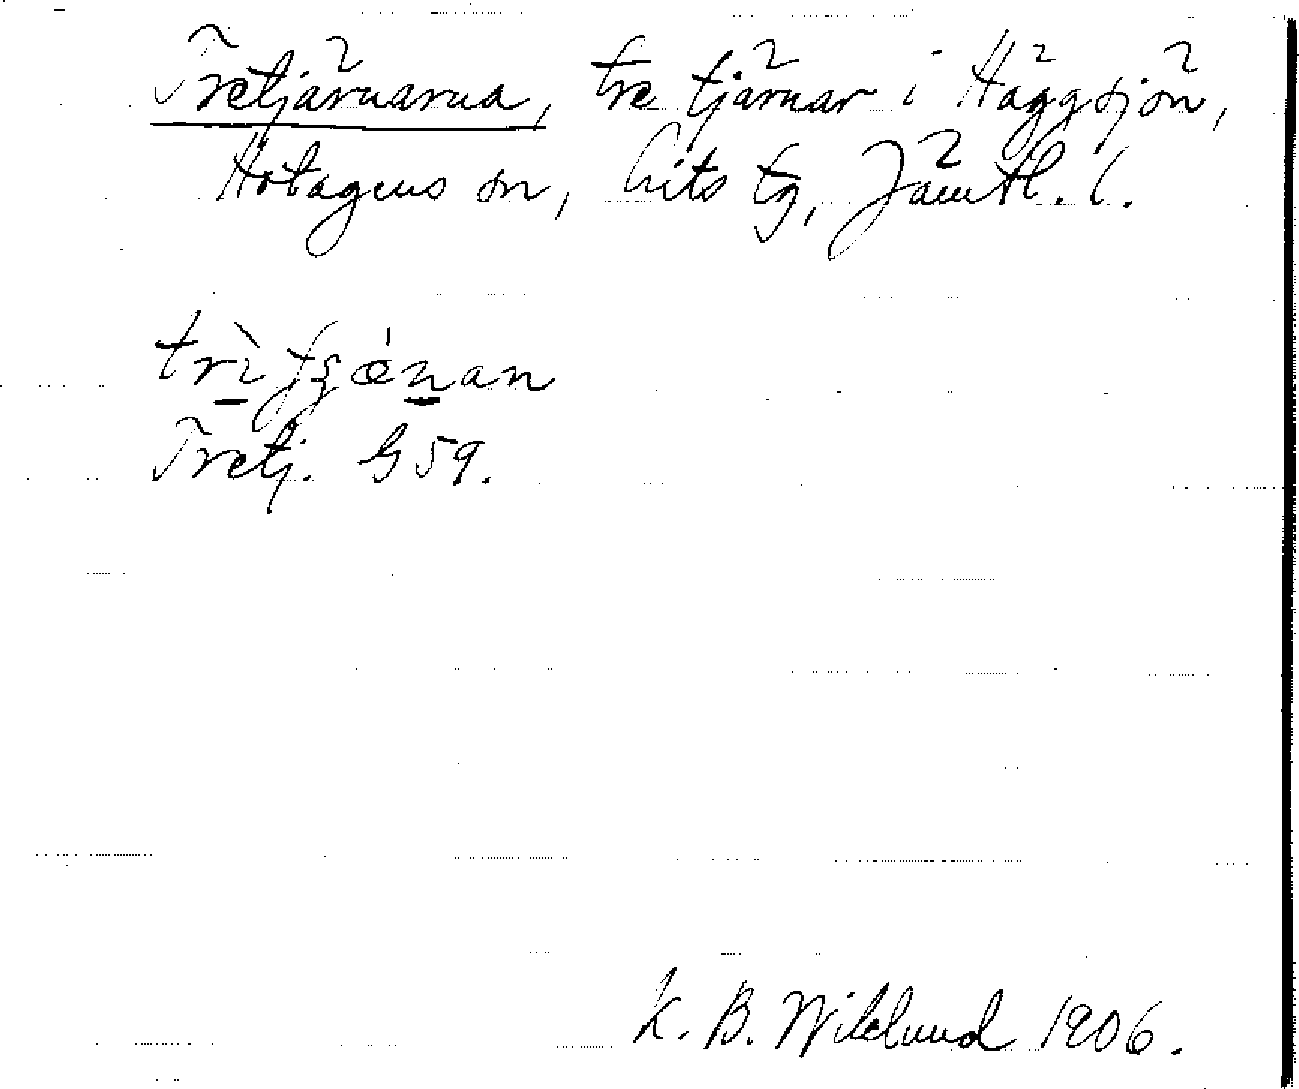 Tretjärnarna, tre tjärnar i Häggsjön,
Hotagens sn, Lits tg, Jämtl. l.
Tretj. G 59.
K. B. Wiklund 1906.